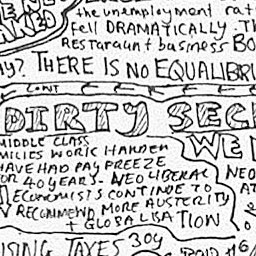 NNED
the unemployment rat
Fell DRAMATICALLY. TH
RESTARAUNT business BO
AY? THERE IS NO EQUALIBRI
CONT
DIRTY SEC
MIDDLE CLASS
MILIES WORK HARDER
HAVE HAD PAY FREEZE
FOR 40 YEARS. NEOLIBERAL
ECONOMISTS CONTINUE TO
RECOMMEND MORE AUSTERITY
+ GLOBALISATION
WE
NEO
AT
ISING TAXES 30y